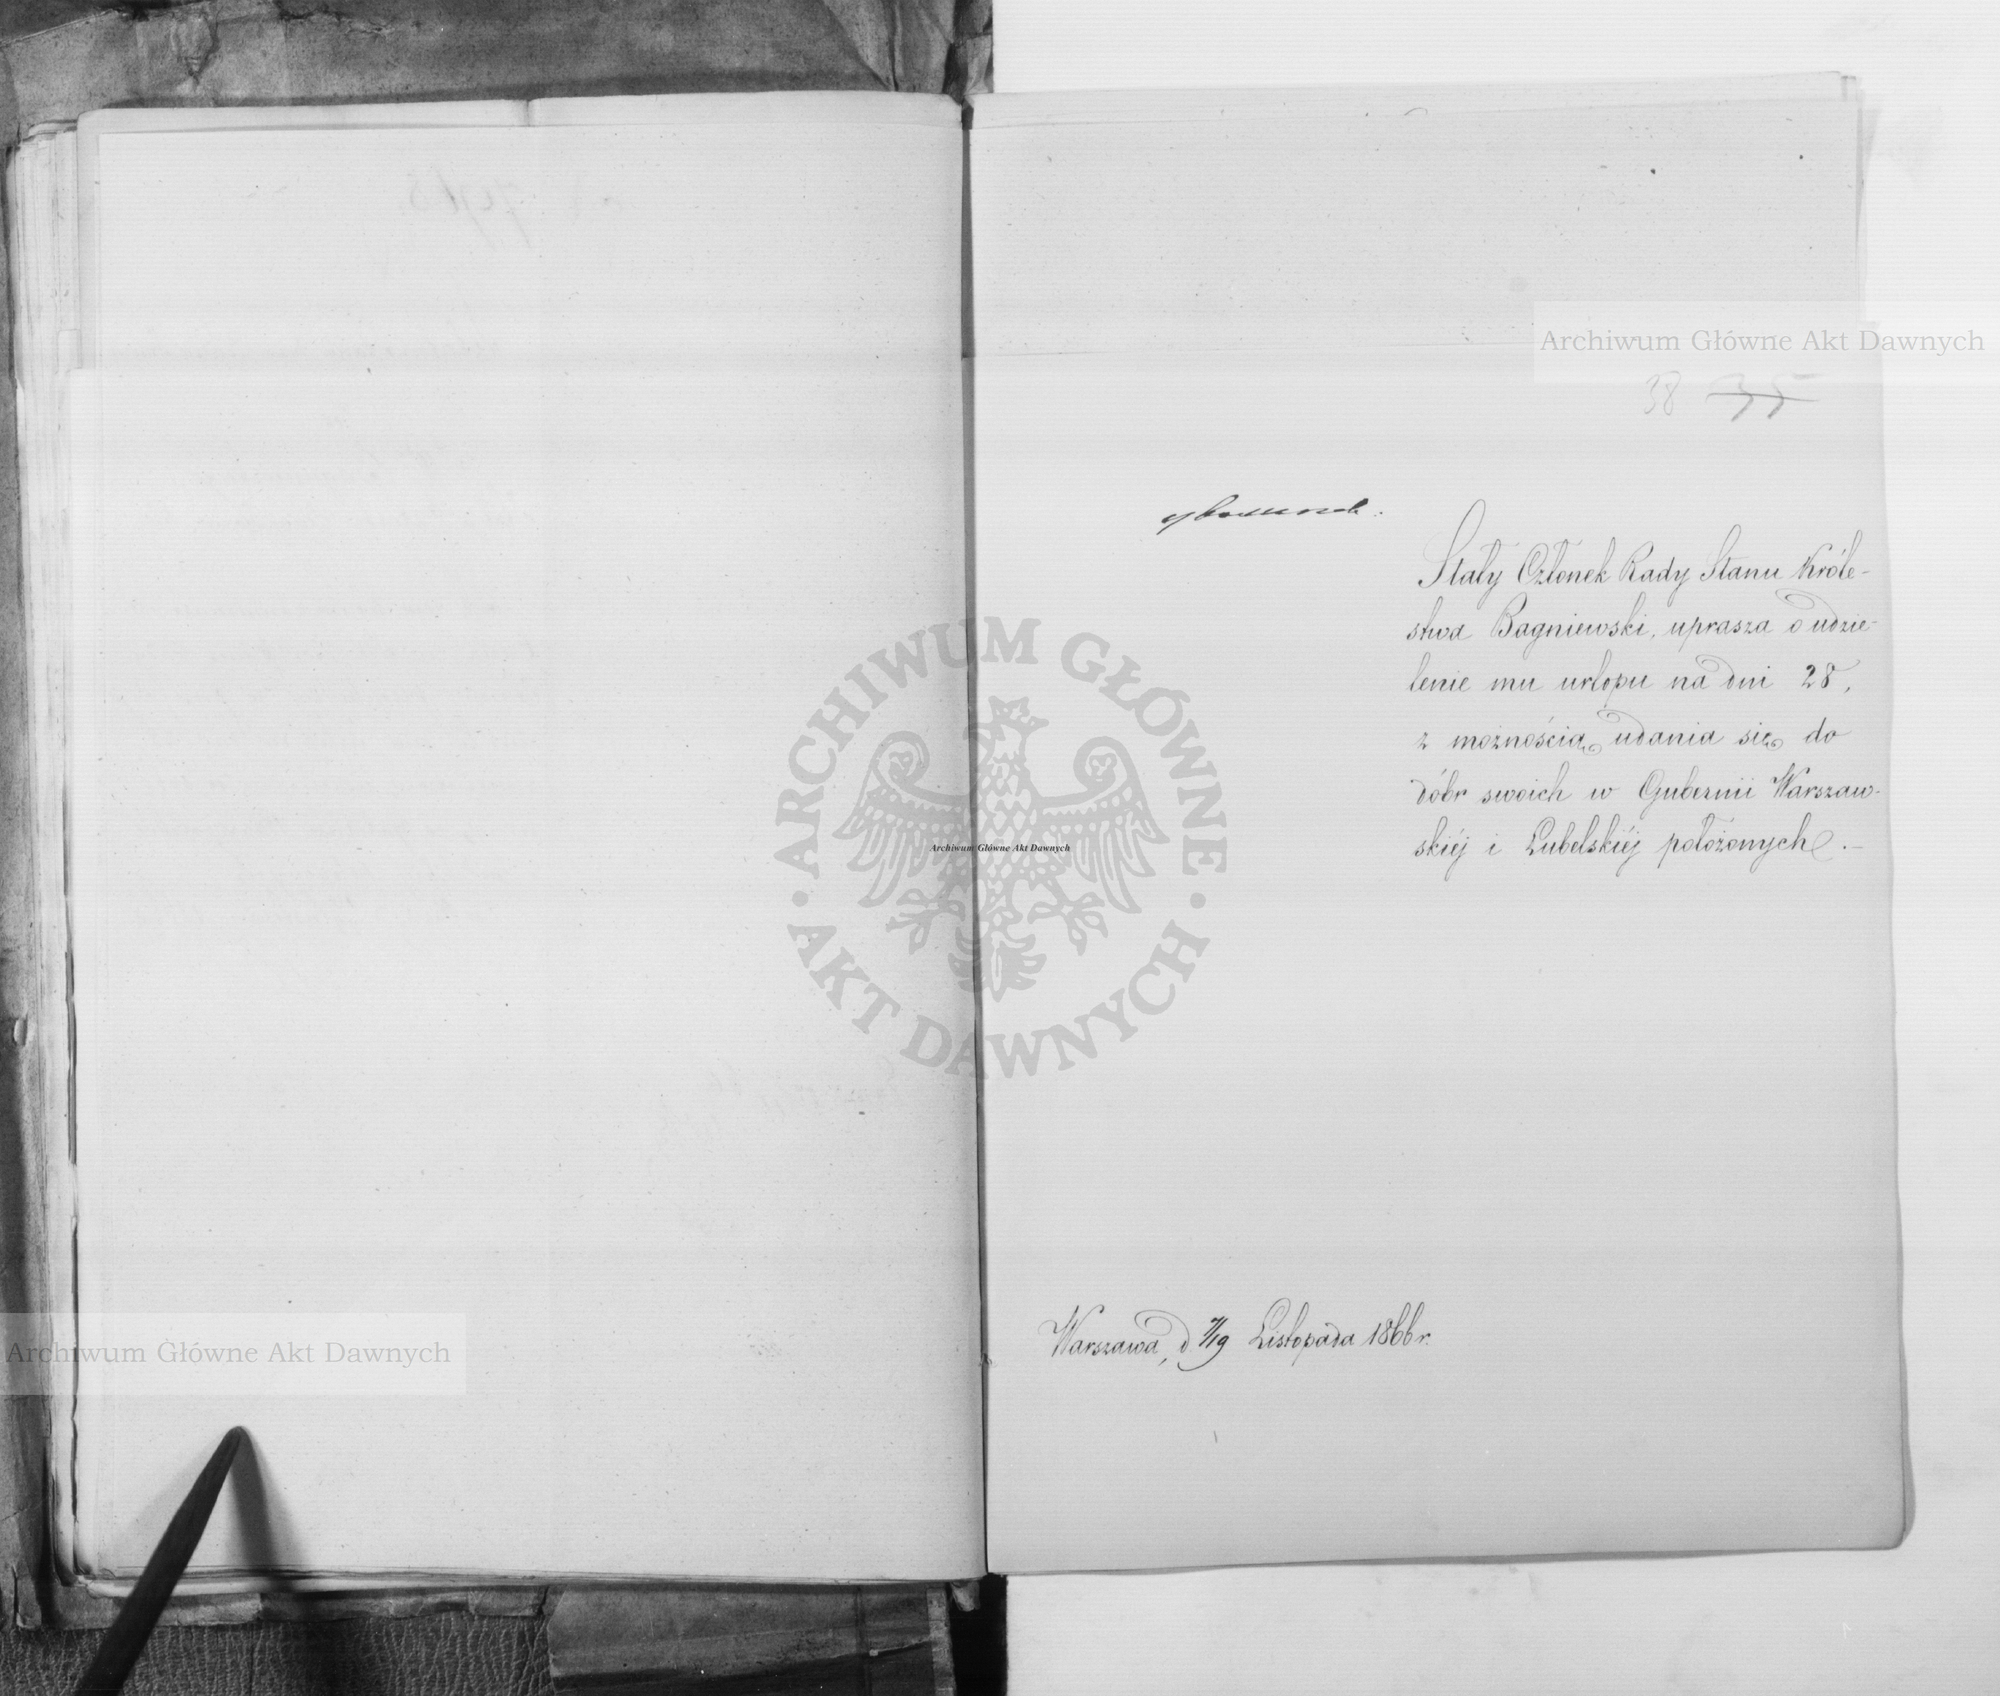 Archiwum Główne Akt Dawnych
38 35
Stały Członek Rady Stanu Króle-
stwa Bagniewski, uprasza o udzie-
lenie mu urlopu na dni 28,
z możnością udania się do
dóbr swoich w Gubernii Warszaw-
skiéj i Lubelskiéj położonych.–
ARCHIWUM GŁÓWNE
AKT DAWNYCH
Archiwum Główne Akt Dawnych
Warszawa, d. 7/19 Listopada 1866 r.
Archiwum Główne Akt Dawnych